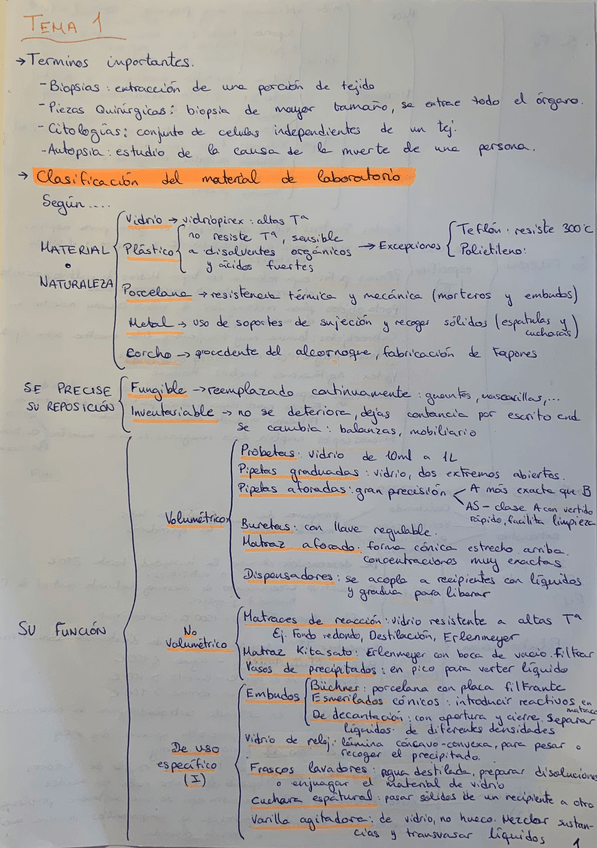 TEMA 1
→ Terminos importantes.
- Biopsias: extracción de una porción de tejido
- Piezas Quirúrgicas: biopsia de mayor tamaño, se extrae todo el órgano.
- Citologías: conjunto de celulas independientes de un tej.
- Autopsia: estudio de la causa de la muerte de una persona.
→ Clasificación del material de laboratorio
Según....
MATERIAL o NATURALEZA
Vidrio → vidriopirex: altas Tª
Plástico no resiste Tª, sensible
a disolventes orgánicos
y ácidos fuertes
→ Excepciones
Teflón: resiste 300ºC
Polietileno:
Porcelana → resistencia térmica y mecánica (morteros y embudos)
Metal → uso de soportes de sujeción y recoger sólidos (espatulas y
cucharas)
Corcho → procedente del alcornoque, fabricación de tapones
SE PRECISE
SU REPOSICIÓN
Fungible → reemplazado continuamente: guantes, mascarillas,...
Inventariable → no se deteriora, dejas contancia por escrito cnd
se cambia: balanzas, mobiliario
SU FUNCIÓN
Volumétrico
Probetas: vidrio de 10ml a 1L
Pipetas graduadas: vidrio, dos extremos abiertos.
Pipetas aforadas: gran precisión
A más exacta que B
AS - clase A con vertido
rápido, facilita limpieza
Buretas: con llave regulable.
Matraz aforado: forma cónica estrecho arriba.
concentraciones muy exactas
Dispensadores: se acopla a recipientes con líquidos
y gradua para liberar
No
volumétrico
Matraces de reacción: vidrio resistente a altas Tª
Ej: Fondo redondo, Destilación, Erlenmeyer
Matraz Kitasato: Erlenmeyer con boca de vacio. filtrar
Vasos de precipitados: en pico para verter líquido
De uso
específico
(I)
Embudos
Büchner: porcelana con placa filtrante
Esmerilados cónicos: introducir reactivos en
matraces
De decantación: con apertura y cierre. Separar
líquidos de diferentes densidades
Vidrio de reloj: lámina cóncavo-convexa, para pesar o
recoger el precipitado.
Frascos lavadores: agua destilada, preparar disoluciones
o enjuagar el material de vidrio
Cuchara espatural: pasar sólidos de un recipiente a otro
Varilla agitadora: de vidrio, no hueco. Mezclar sustan-
cias y transvasar líquidos
1